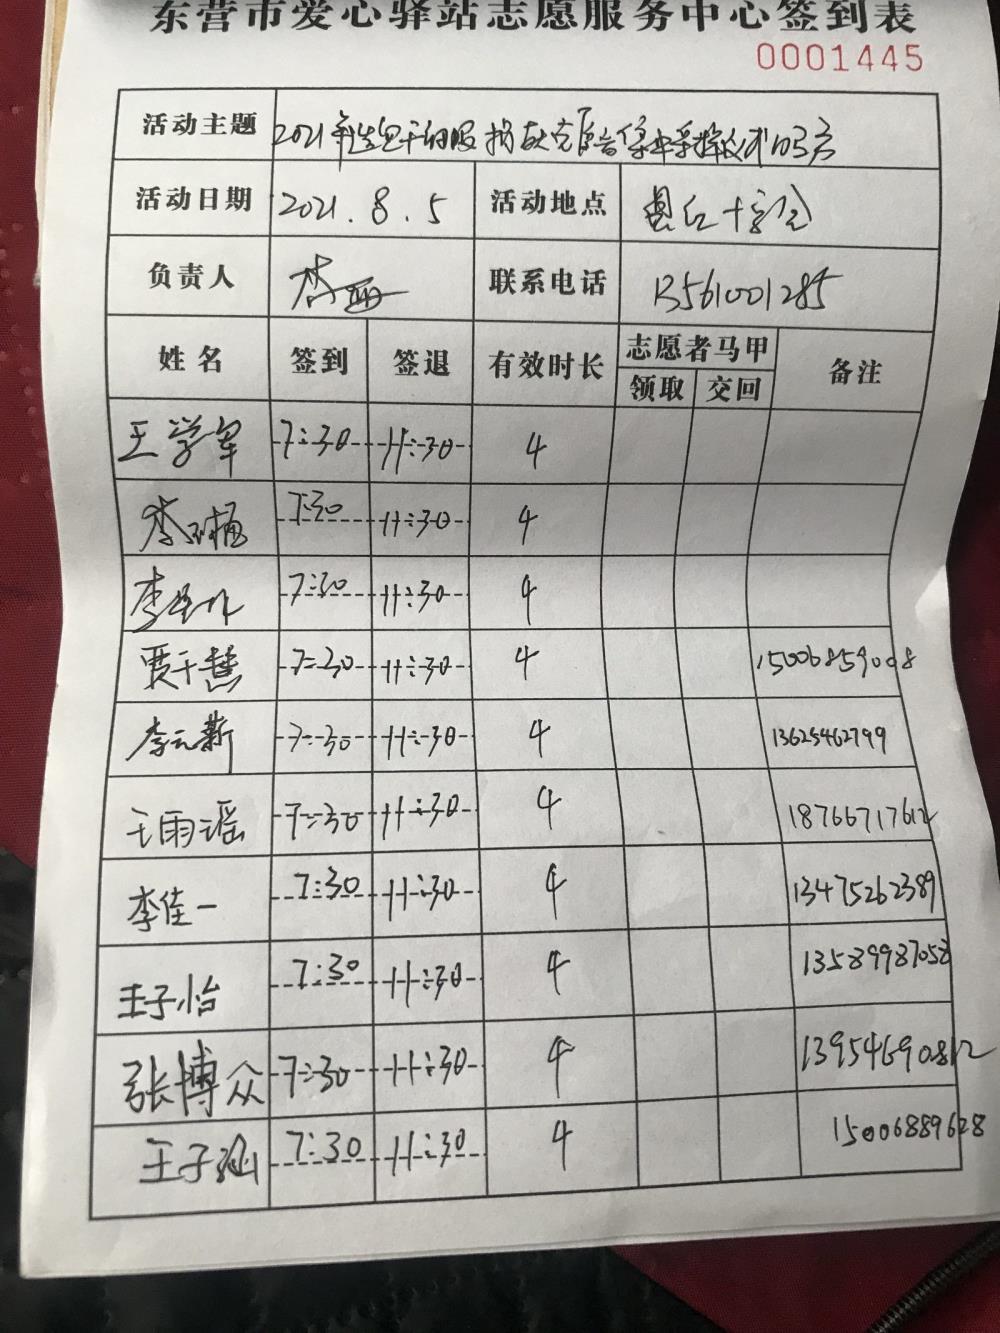 东营市爱心驿站志愿服务中心签到表
0001445
活动主题 2021年造血干细胞捐献
活动日期 2021.8.5 活动地点 县红十字会
负责人 李 联系电话 13561001285
姓名 签到 签退 有效时长 志愿者马甲 备注
领取 交回
王学军 7:30 11:30 4
李 7:30 11:30 4
李 7:30 11:30 4
贾千慧 7:30 11:30 4 15006859008
李云新 7:30 11:30 4 13625462799
王雨谣 7:30 11:30 4 18766717612
李佳一 7:30 11:30 4 13475262389
王子怡 7:30 11:30 4 13589987058
张博众 7:30 11:30 4 13954690812
王子涵 7:30 11:30 4 15006889628